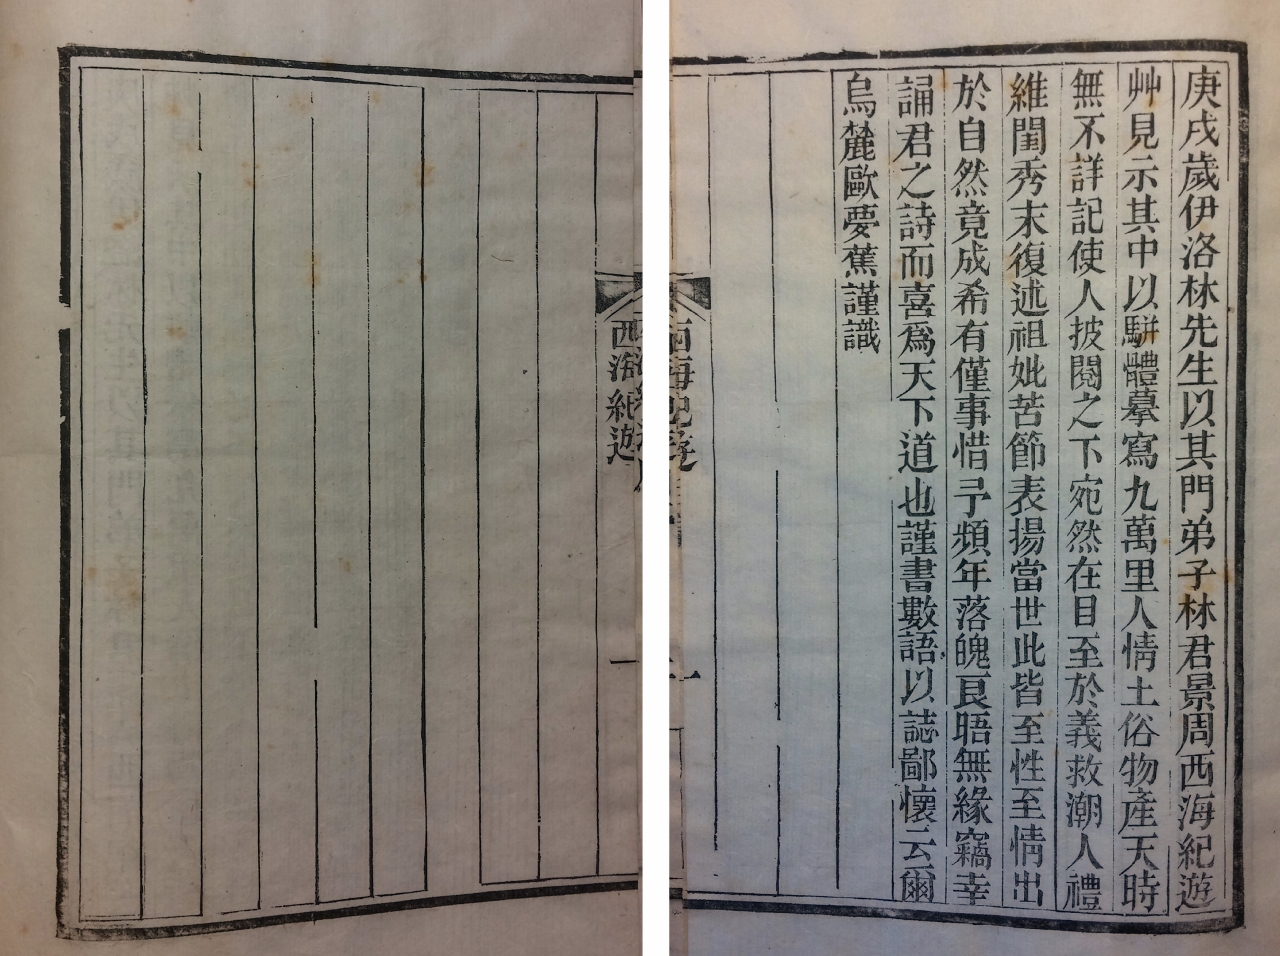 庚戌歲伊洛林先生以其門弟子林君景周西海紀遊
艸見示其中以駢體摹寫九萬里人情土俗物產天時
無不詳記使人披閱之下宛然在目至於義救潮人禮
維閨秀末復述祖妣苦節表揚當世此皆至性至情出
於自然竟成希有僅事惜予頻年落魄艮晤無緣竊幸
誦君之詩而喜為天下道也謹書數語以誌鄙懷云爾
烏麓歐夢蕉謹識
西海紀遊
一